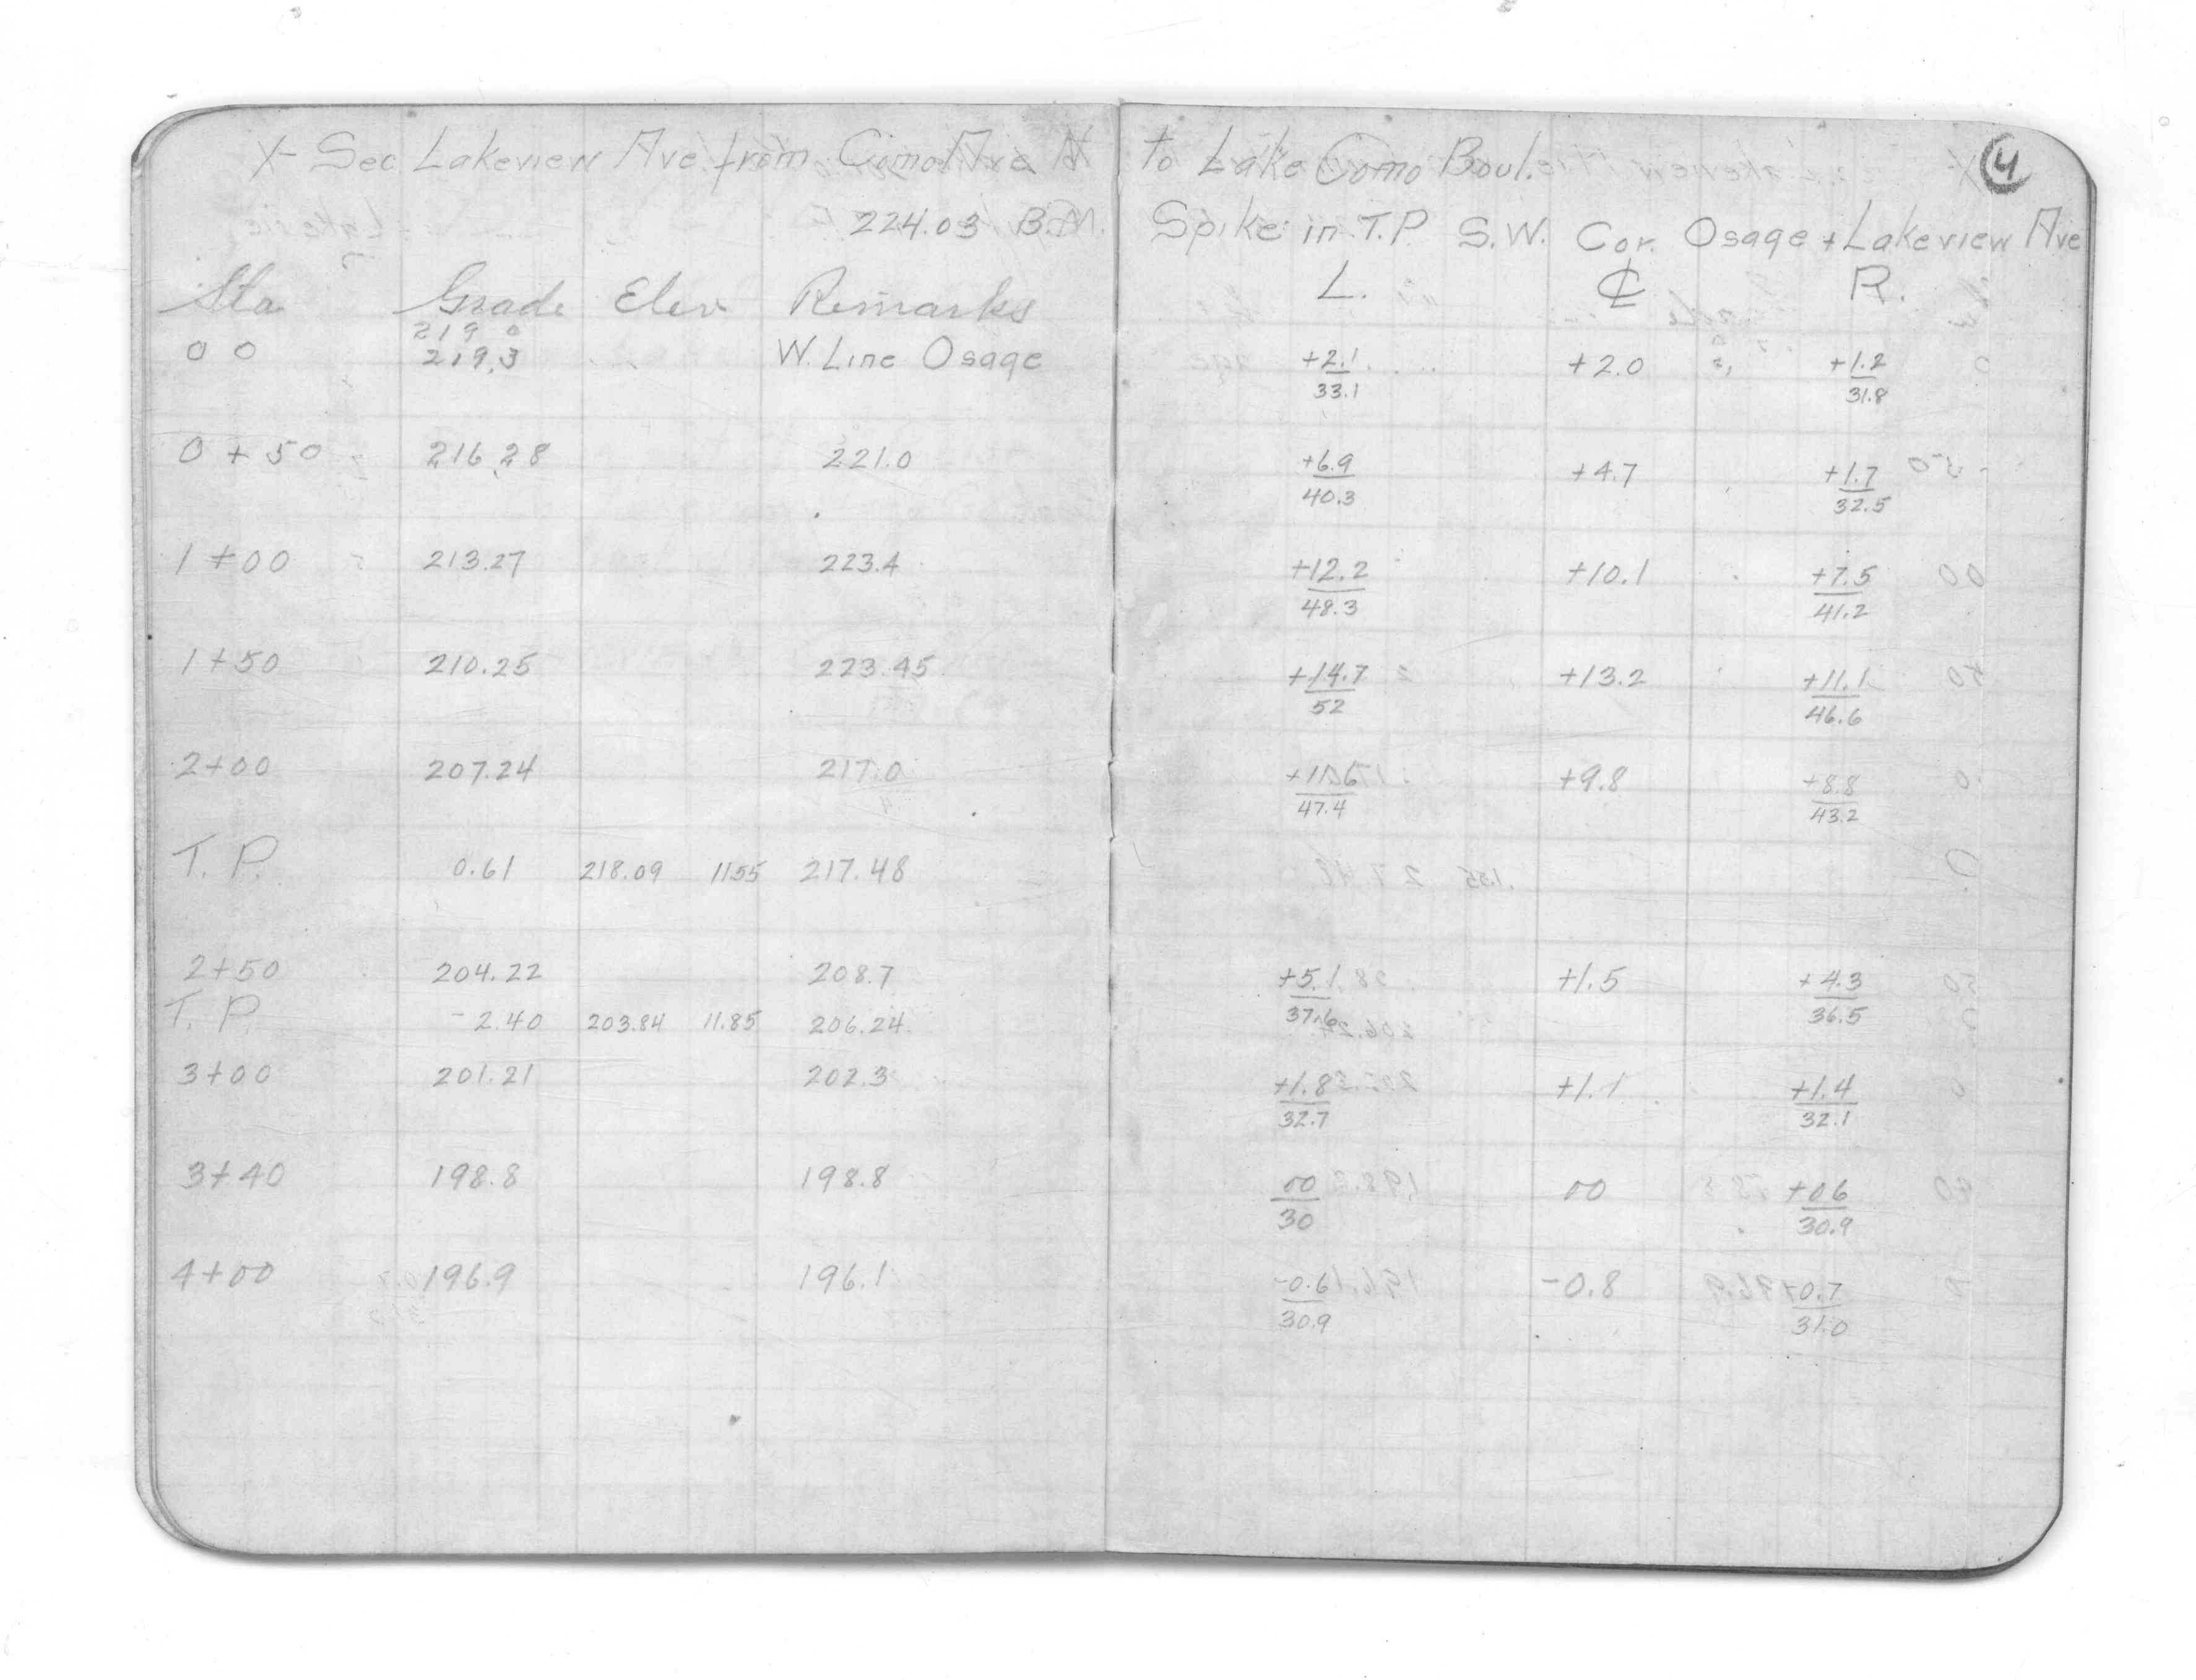 X-Sec Lakeview Ave from Como Ave N to Lake Como Boul. 4
224.03 B.M. Spike in T.P S.W. Cor. Osage + Lakeview Ave
Sta Grade Elev Remarks L. ℄ R.
219.0
00 219.3 W. Line Osage +2.1 +2.0 +1.2
33.1 31.8
0+50 216.28 221.0 +6.9 +4.7 +1.7
40.3 32.5
1+00 213.27 223.4 +12.2 +10.1 +7.5
48.3 41.2
1+50 210.25 223.45 +14.7 +13.2 +11.1
52 46.6
2+00 207.24 217.0 +11.6 +9.8 +8.8
47.4 43.2
T.P. 0.61 218.09 1155 217.48
2+50 204.22 208.7 +5.1 +1.5 +4.3
37.6 36.5
T.P. -2.40 203.84 11.85 206.24
3+00 201.21 202.3 +1.8 +1.1 +1.4
32.7 32.1
3+40 198.8 198.8 00 00 +06
30 30.9
4+00 196.9 196.1 -0.6 -0.8 +0.7
30.9 31.0